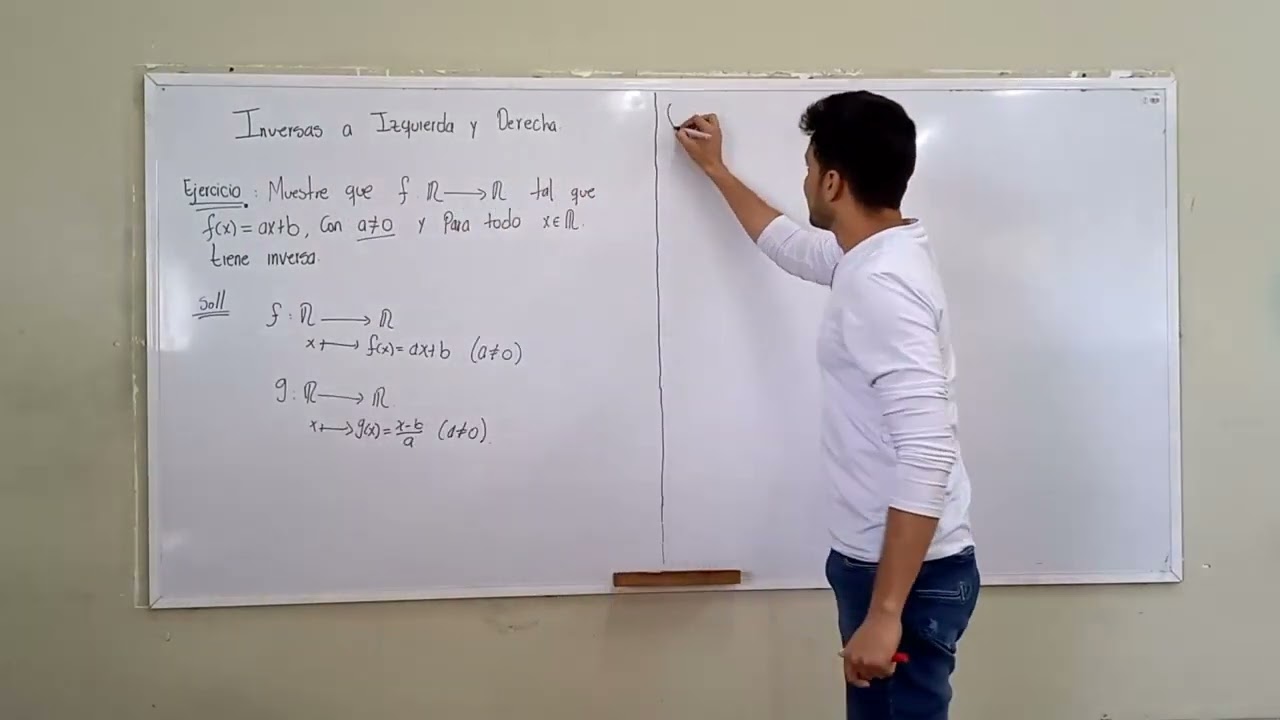 Inversas a Izquierda y Derecha.
Ejercicio: Muestre que f: ℝ ⟶ ℝ tal que
f(x) = ax+b, Con a≠0 y Para todo x∈ℝ.
tiene inversa.
Soll
f: ℝ ⟶ ℝ
x ⟼ f(x) = ax+b (a≠0)
g: ℝ ⟶ ℝ.
x ⟼ g(x) = (x-b)/a (a≠0).
(